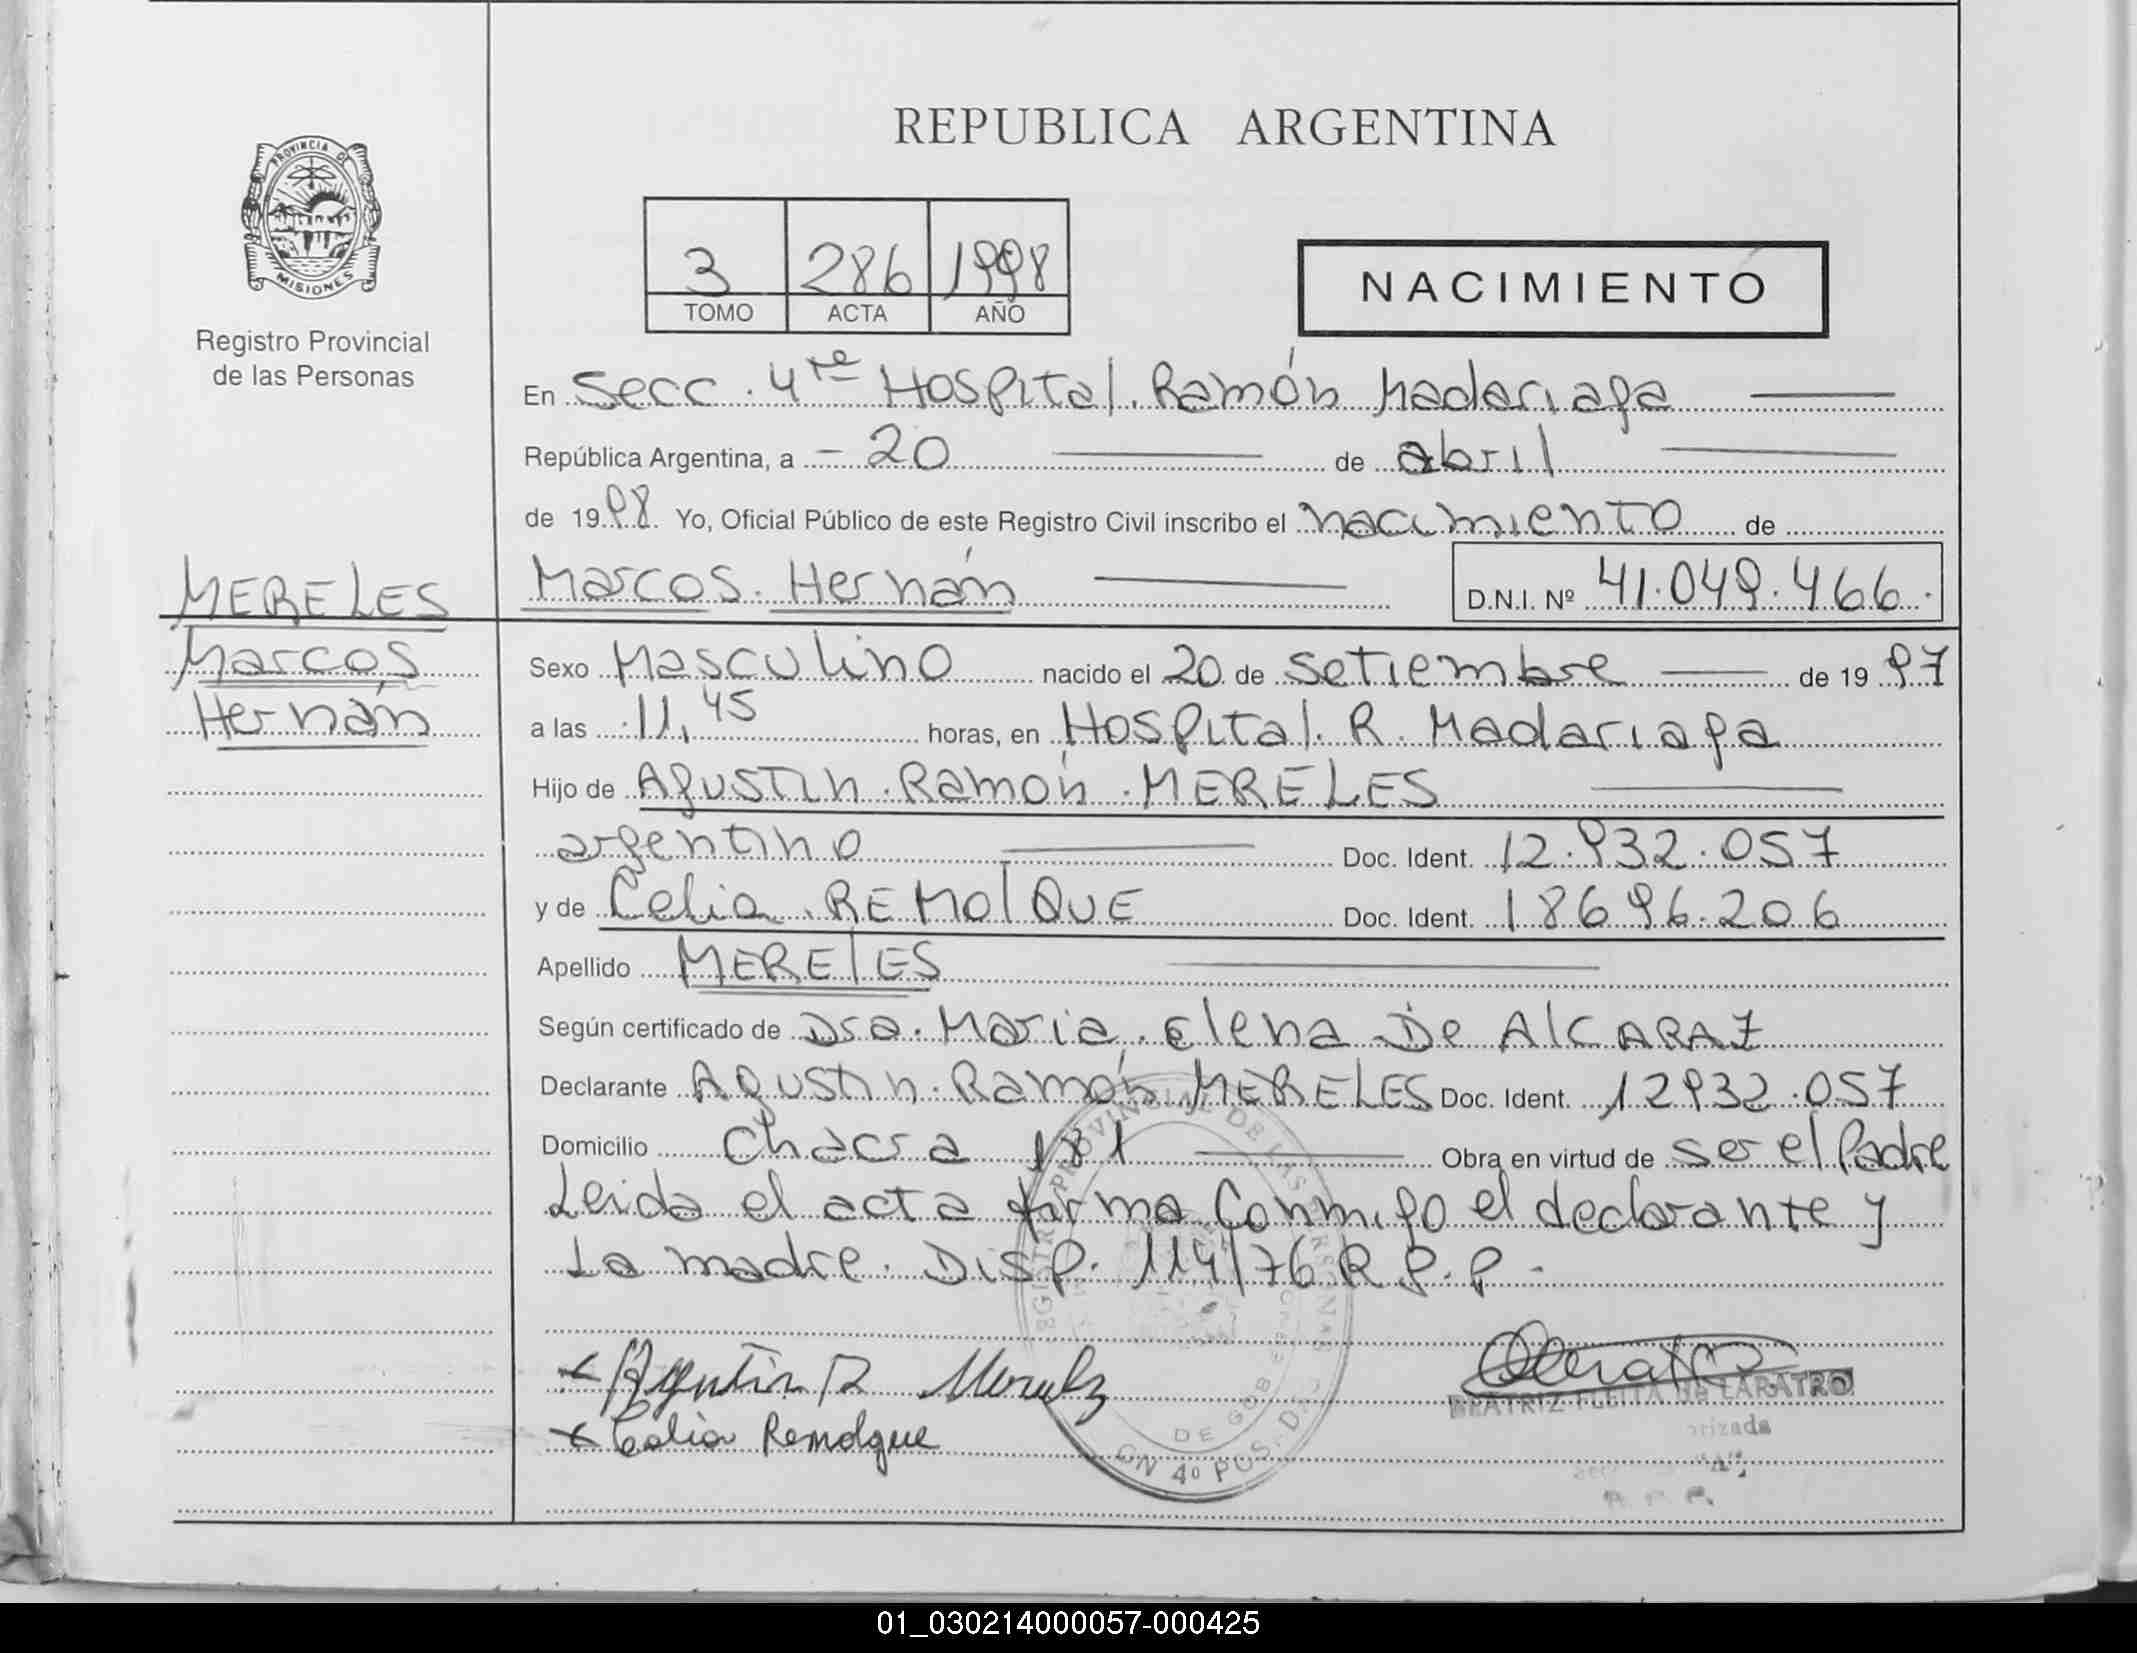 REPUBLICA ARGENTINA
PROVINCIA DE
MISIONES
Registro Provincial
de las Personas
3 286 1998
TOMO ACTA AÑO
NACIMIENTO
En Secc. 4ta Hospital. Ramón Madariaga
República Argentina, a - 20 de abril
de 1998. Yo, Oficial Público de este Registro Civil inscribo el nacimiento de
MERELES
Marcos
Hernán
Marcos. Hernán D.N.I. Nº 41.049.466.
Sexo Masculino nacido el 20 de Setiembre de 1997
a las 11,45 horas, en Hospital. R. Madariaga
Hijo de Agustin. Ramón. MERELES
argentino Doc. Ident. 12.932.057
y de Celia. REMOlQUE Doc. Ident. 18696.206
Apellido MERElES
Según certificado de Dra. Maria. Elena De AlCARAZ
Declarante Agustin. Ramón MERELES Doc. Ident. 12932.057
Domicilio Chacra 181 Obra en virtud de ser el Padre
Leida el acta firma Conmigo el declarante y
La madre. Disp. 114/76 R.P.P.
REGISTRO PROVINCIAL DE LAS PERSONAS
DE GOB
CN 4º POS.
x Agustin R Mereles
x Celia Remolque
BEATRIZ FLEITA de LARATRO
"A"
R. P. P.
01_030214000057-000425